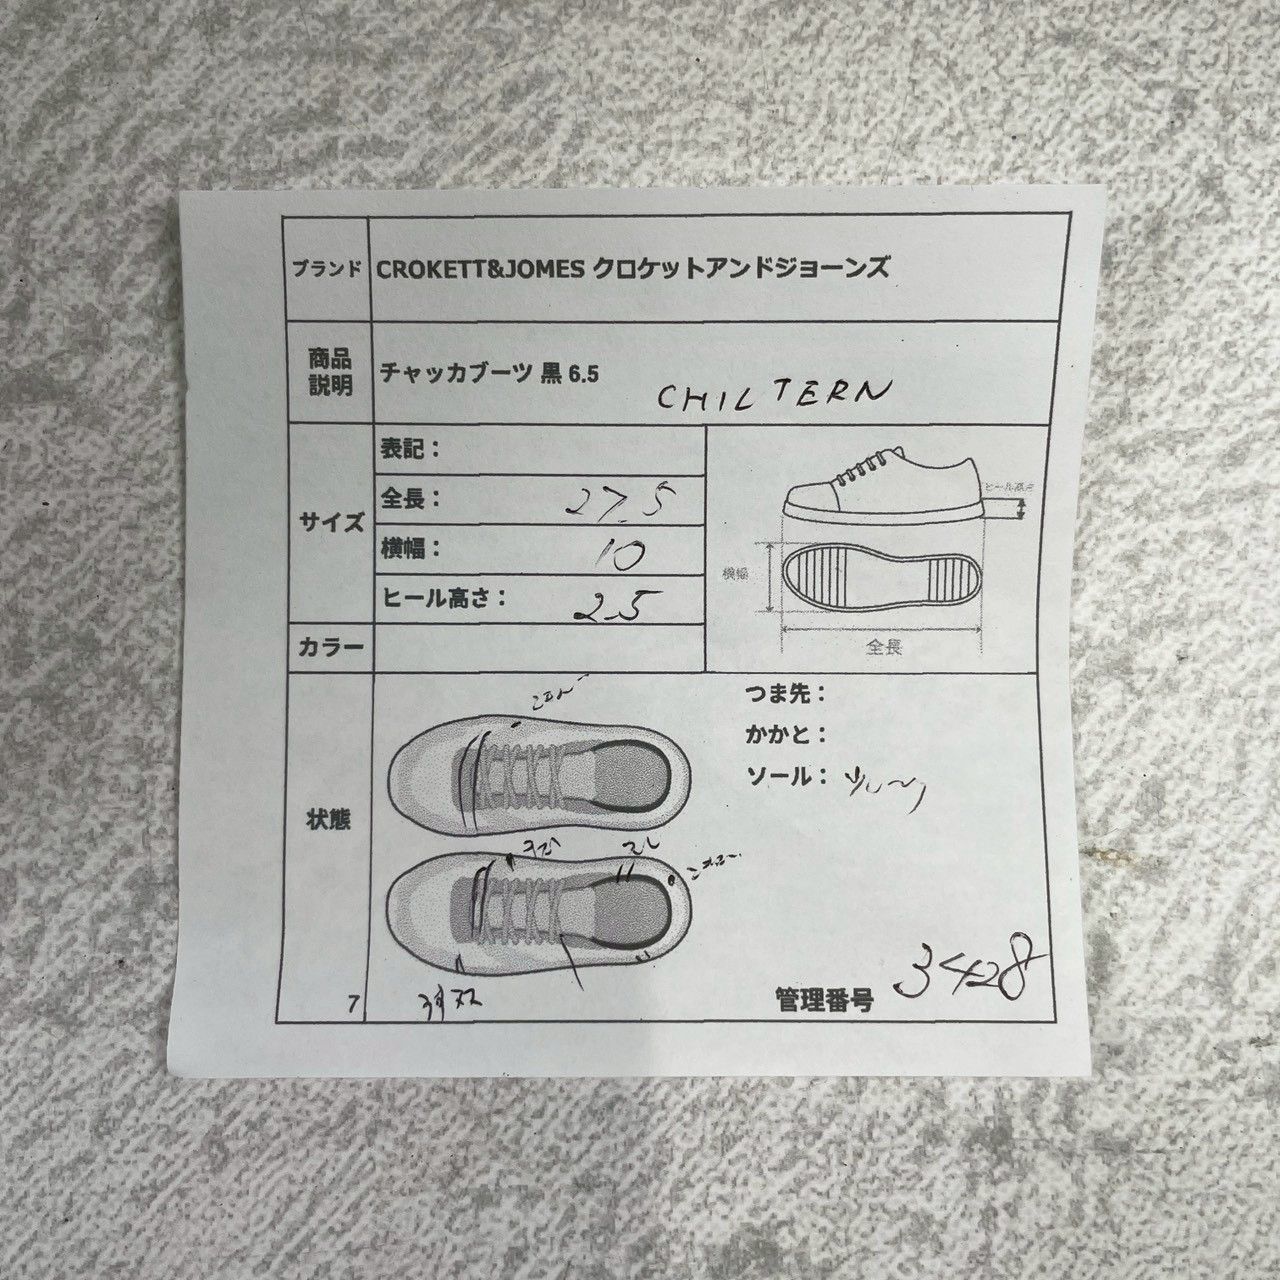 ブランド CROKETT&JOMES クロケットアンドジョーンズ
商品説明 チャッカブーツ 黒 6.5
CHILTERN
サイズ
表記：
全長： 27.5
横幅： 10
ヒール高さ： 2.5
ヒール高さ
横幅
全長
カラー
状態
つま先：
かかと：
ソール：
7
管理番号 3428